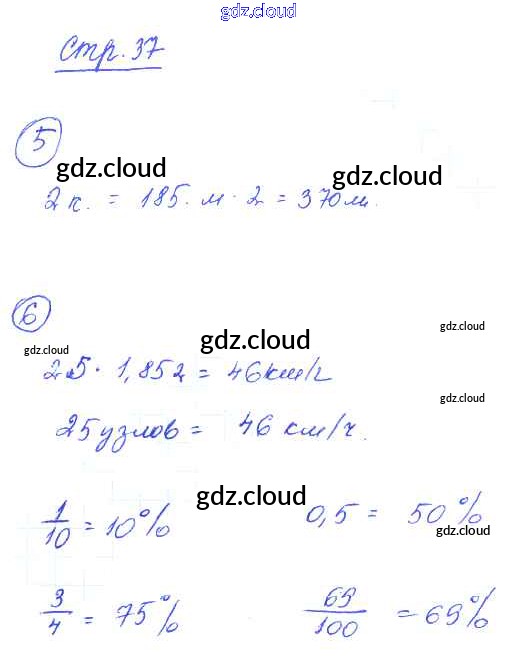 gdz.cloud
Стр. 37
5
gdz.cloud gdz.cloud
2 к. = 185. м · 2 = 370 м.
6
gdz.cloud gdz.cloud gdz.cloud
25 · 1,852 = 46 км/ч
gdz.cloud
25 узлов = 46 км/ч.
gdz.cloud
1/10 = 10% 0,5 = 50%
gdz.cloud
3/4 = 75% 69/100 = 69%